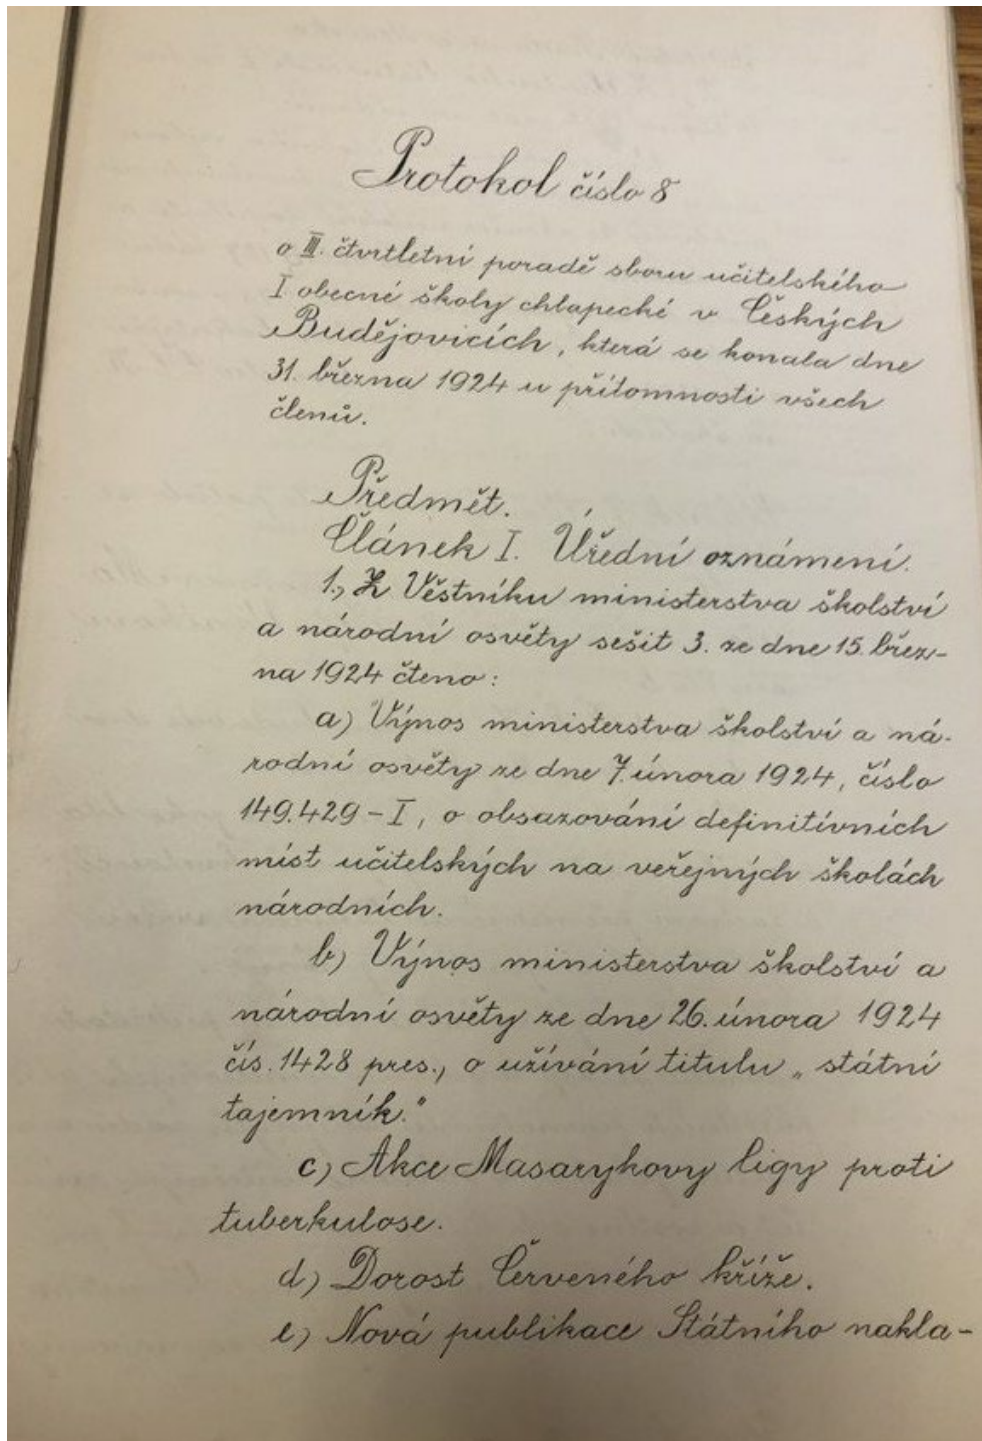 Protokol číslo 8
o III. čtvrtletní poradě sboru učitelského
I obecné školy chlapecké v Českých
Budějovicích, která se konala dne
31. března 1924 u přítomnosti všech
členů.
Předmět.
Článek I. Úřední oznámení.
1., Z Věstníku ministerstva školství
a národní osvěty sešit 3. ze dne 15. břez-
na 1924 čteno:
a) Výnos ministerstva školství a ná-
rodní osvěty ze dne 7. února 1924, číslo
149.429 - I, o obsazování definitívních
míst učitelských na veřejných školách
národních.
b) Výnos ministerstva školství a
národní osvěty ze dne 26. února 1924
čís. 1428 pres., o užívání titulu „státní
tajemník."
c) Akce Masarykovy ligy proti
tuberkulose.
d) Dorost Červeného kříže.
e) Nová publikace Státního nakla-